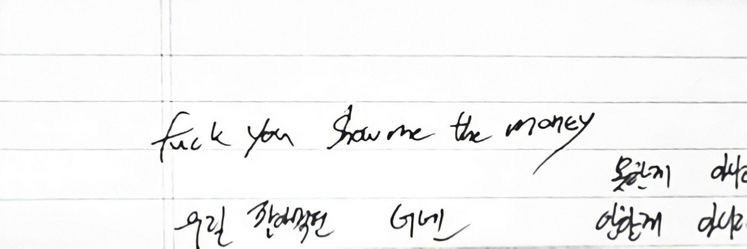 fuck you Show me the money
못한게
우릴 팔아먹던 너넨 안한게